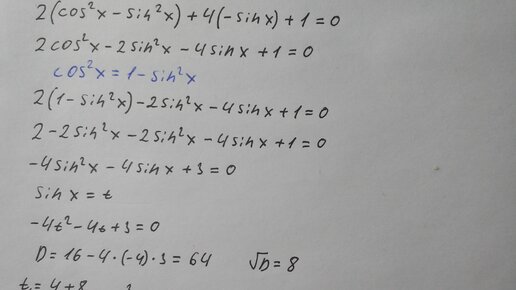 2(cos²x - sin²x) + 4(-sinx) + 1 = 0
2cos²x - 2sin²x - 4sinx + 1 = 0
cos²x = 1 - sin²x
2(1 - sin²x) - 2sin²x - 4sinx + 1 = 0
2 - 2sin²x - 2sin²x - 4sinx + 1 = 0
-4sin²x - 4sinx + 3 = 0
sinx = t
-4t² - 4t + 3 = 0
D = 16 - 4·(-4)·3 = 64 √D = 8
t₁ = 4+8